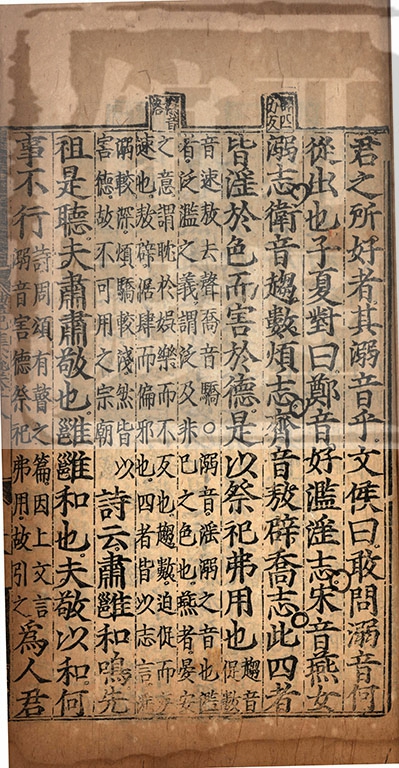 君之所好者其溺音乎文侯曰敢問溺音何
從出也子夏對曰鄭音好濫淫志宋音燕女
溺志衛音趨數煩志齊音敖辟喬志此四者
皆淫於色而害於德是以祭祀弗用也趨音促數
音速敖去聲喬音驕○溺音淫溺之音也濫
者泛濫之義謂泛及非己之色也燕者晏安
之意謂耽於娛樂而不反也趨數迫促而疾
速也敖辟倨肆而偏邪也四者皆以志言淫
溺較深煩驕較淺然皆以
害德故不可用之宗廟
詩云肅雝和鳴先
祖是聽夫肅肅敬也雝雝和也夫敬以和何
事不行詩周頌有瞽之篇因上文言
溺音害德祭祀弗用故引之為人君